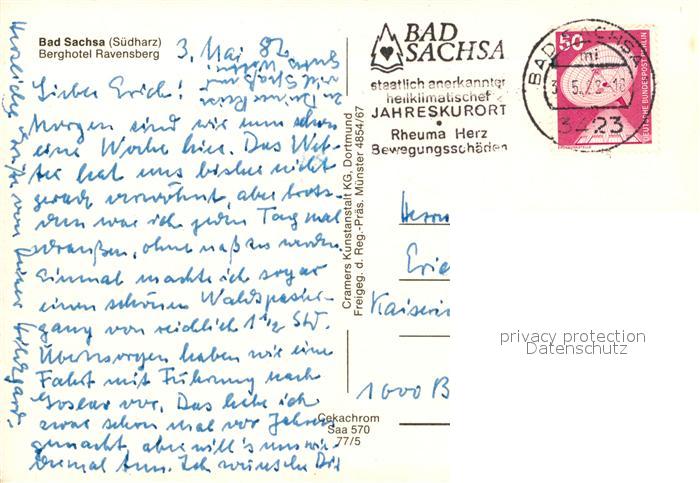 Bad Sachsa (Südharz)
Berghotel Ravensberg
3. Mai 82
Lieber Erich!
Morgen sind wir nun schon
eine Woche hier. Das Wet-
ter hat uns bisher nicht
gerade verwöhnt, aber trotz-
dem war ich jeden Tag mal
draußen, ohne naß zu werden.
Einmal machte ich sogar
einen schönen Waldspazier-
gang von reichlich 1 1/2 Std.
Übermorgen haben wir eine
Fahrt mit Führung nach
Goslar vor. Das habe ich
zwar schon mal vor Jahren
gemacht, aber will's nun wie-
dermal tun. Ich wünsche Dir
Herzliche Grüße von Deiner Hildegard.
Cramers Kunstanstalt KG, Dortmund
Freigeg. d. Reg.-Präs. Münster 4854/67
Cekachrom
Saa 570
77/5
BAD
SACHSA
staatlich anerkannter
heilklimatischer
JAHRESKURORT
Rheuma Herz
Bewegungsschäden
BAD SACHSA
mi
3423
50
DEUTSCHE BUNDESPOST BERLIN
Herrn
Eric
Kaiserin
1000 B
privacy protection
Datenschutz